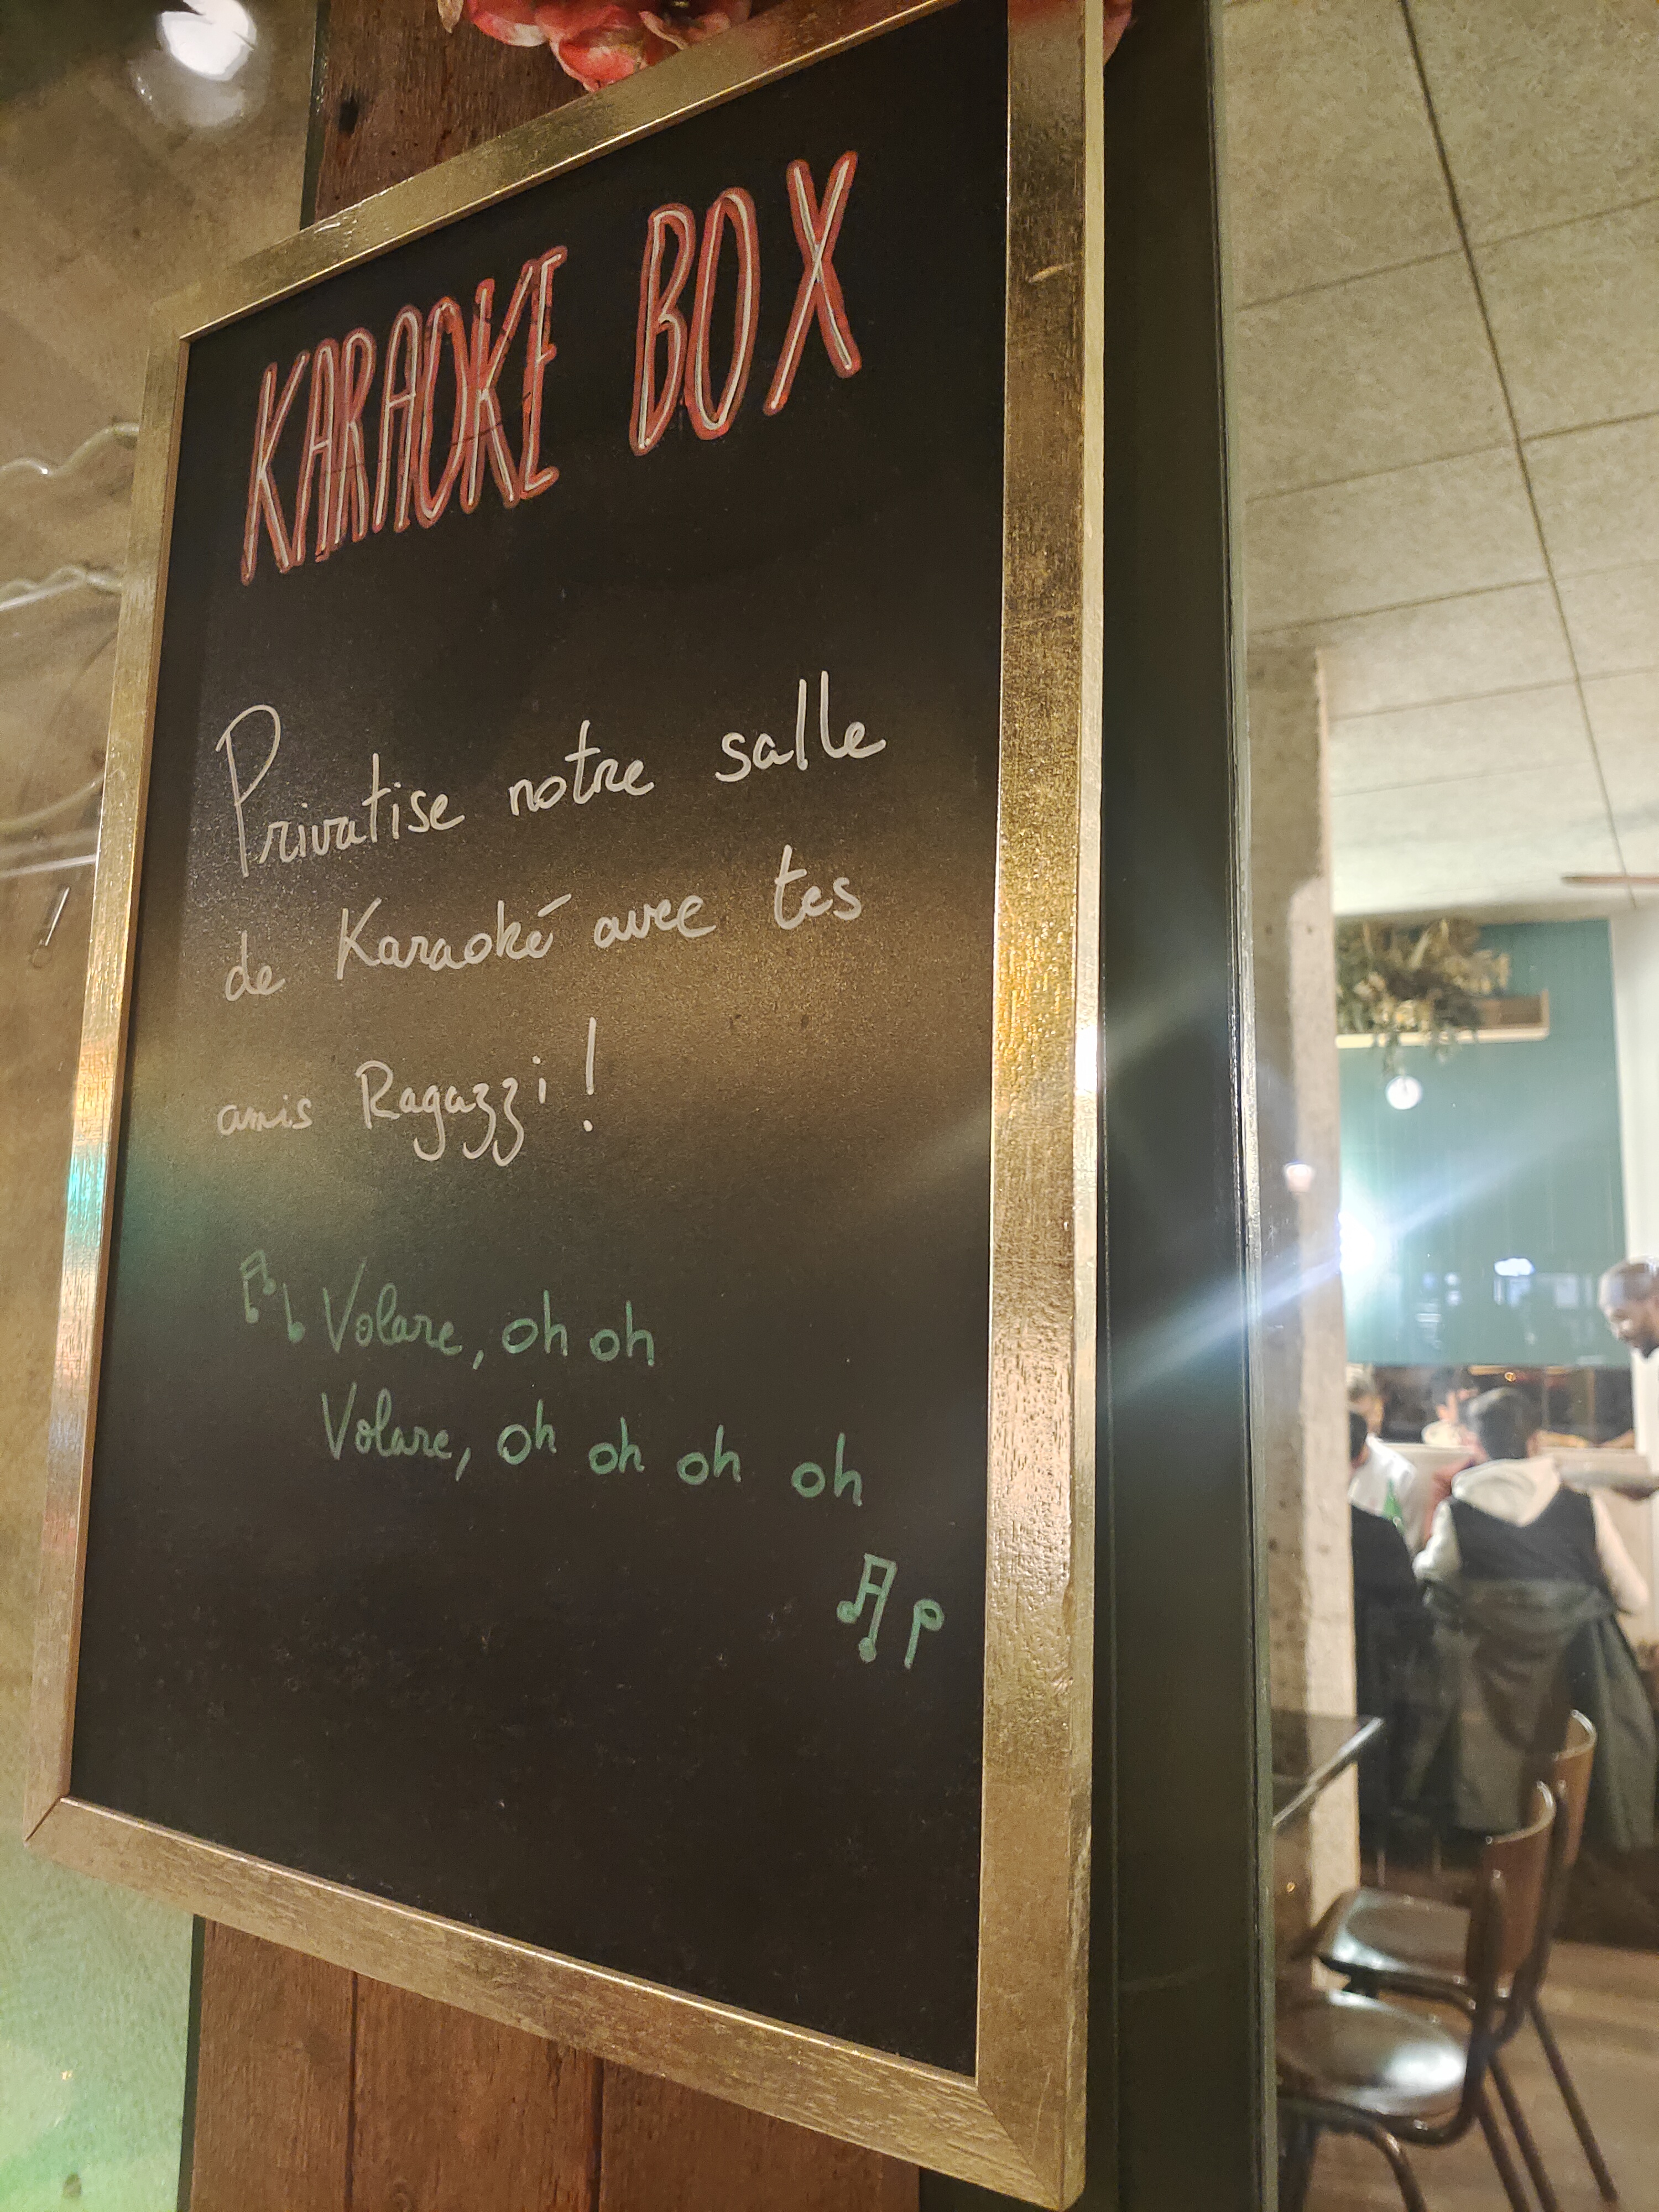 KARAOKE BOX
Privatise notre salle
de Karaoké avec tes
amis Ragazzi !
Volare, oh oh
Volare, oh oh oh oh